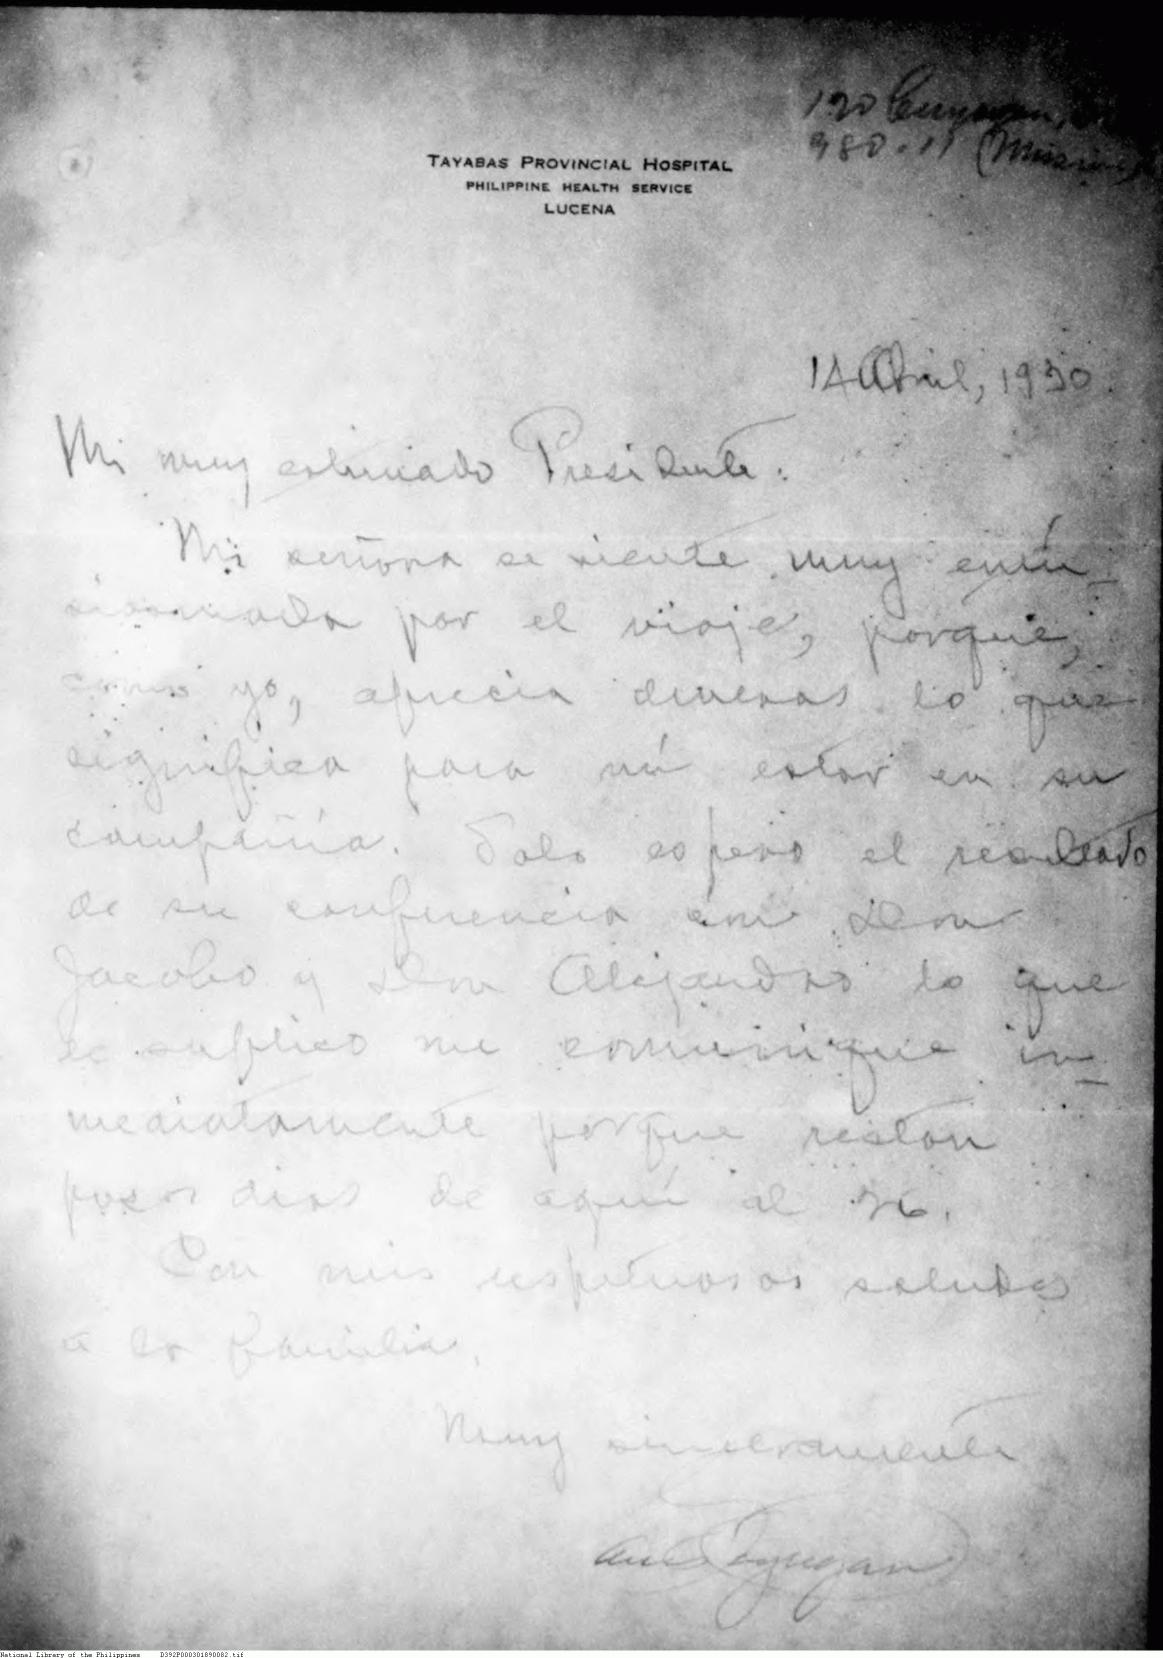 120
980-11 (Mission
TAYABAS PROVINCIAL HOSPITAL
PHILIPPINE HEALTH SERVICE
LUCENA
14 Abril, 1930.
Mi muy estimado Presidente:
Mi señora se siente muy
por el viaje, porque,
como yo, aprecia deveras lo que
significa para mí estar en su
compañía. Solo espero el resultado
de su conferencia con Don
Jacobo y Don Alejandro lo que
le suplico me comunique in-
mediatamente porque restan
pocos dias de aquí al 26.
Con mis respetuosos saludos
a la familia,
Muy sinceramente
National Library of the Philippines D392P000301890082.tif